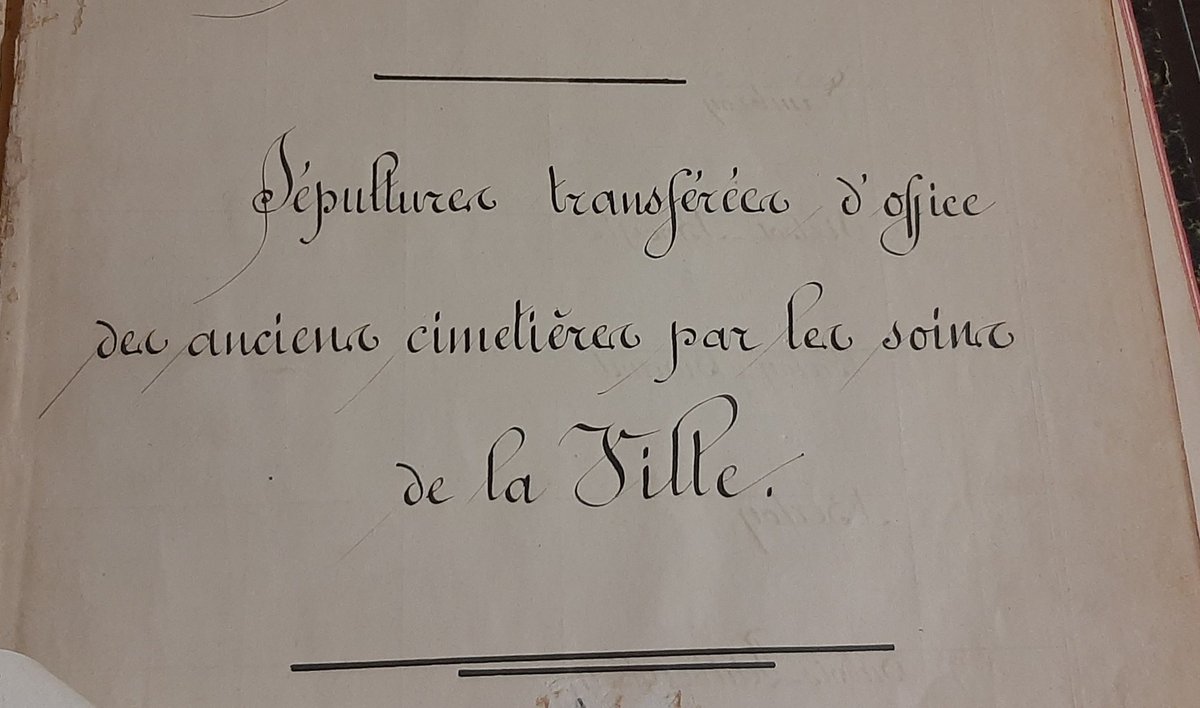 Sépultures transférées d'office
des anciens cimetières par les soins
de la Ville.